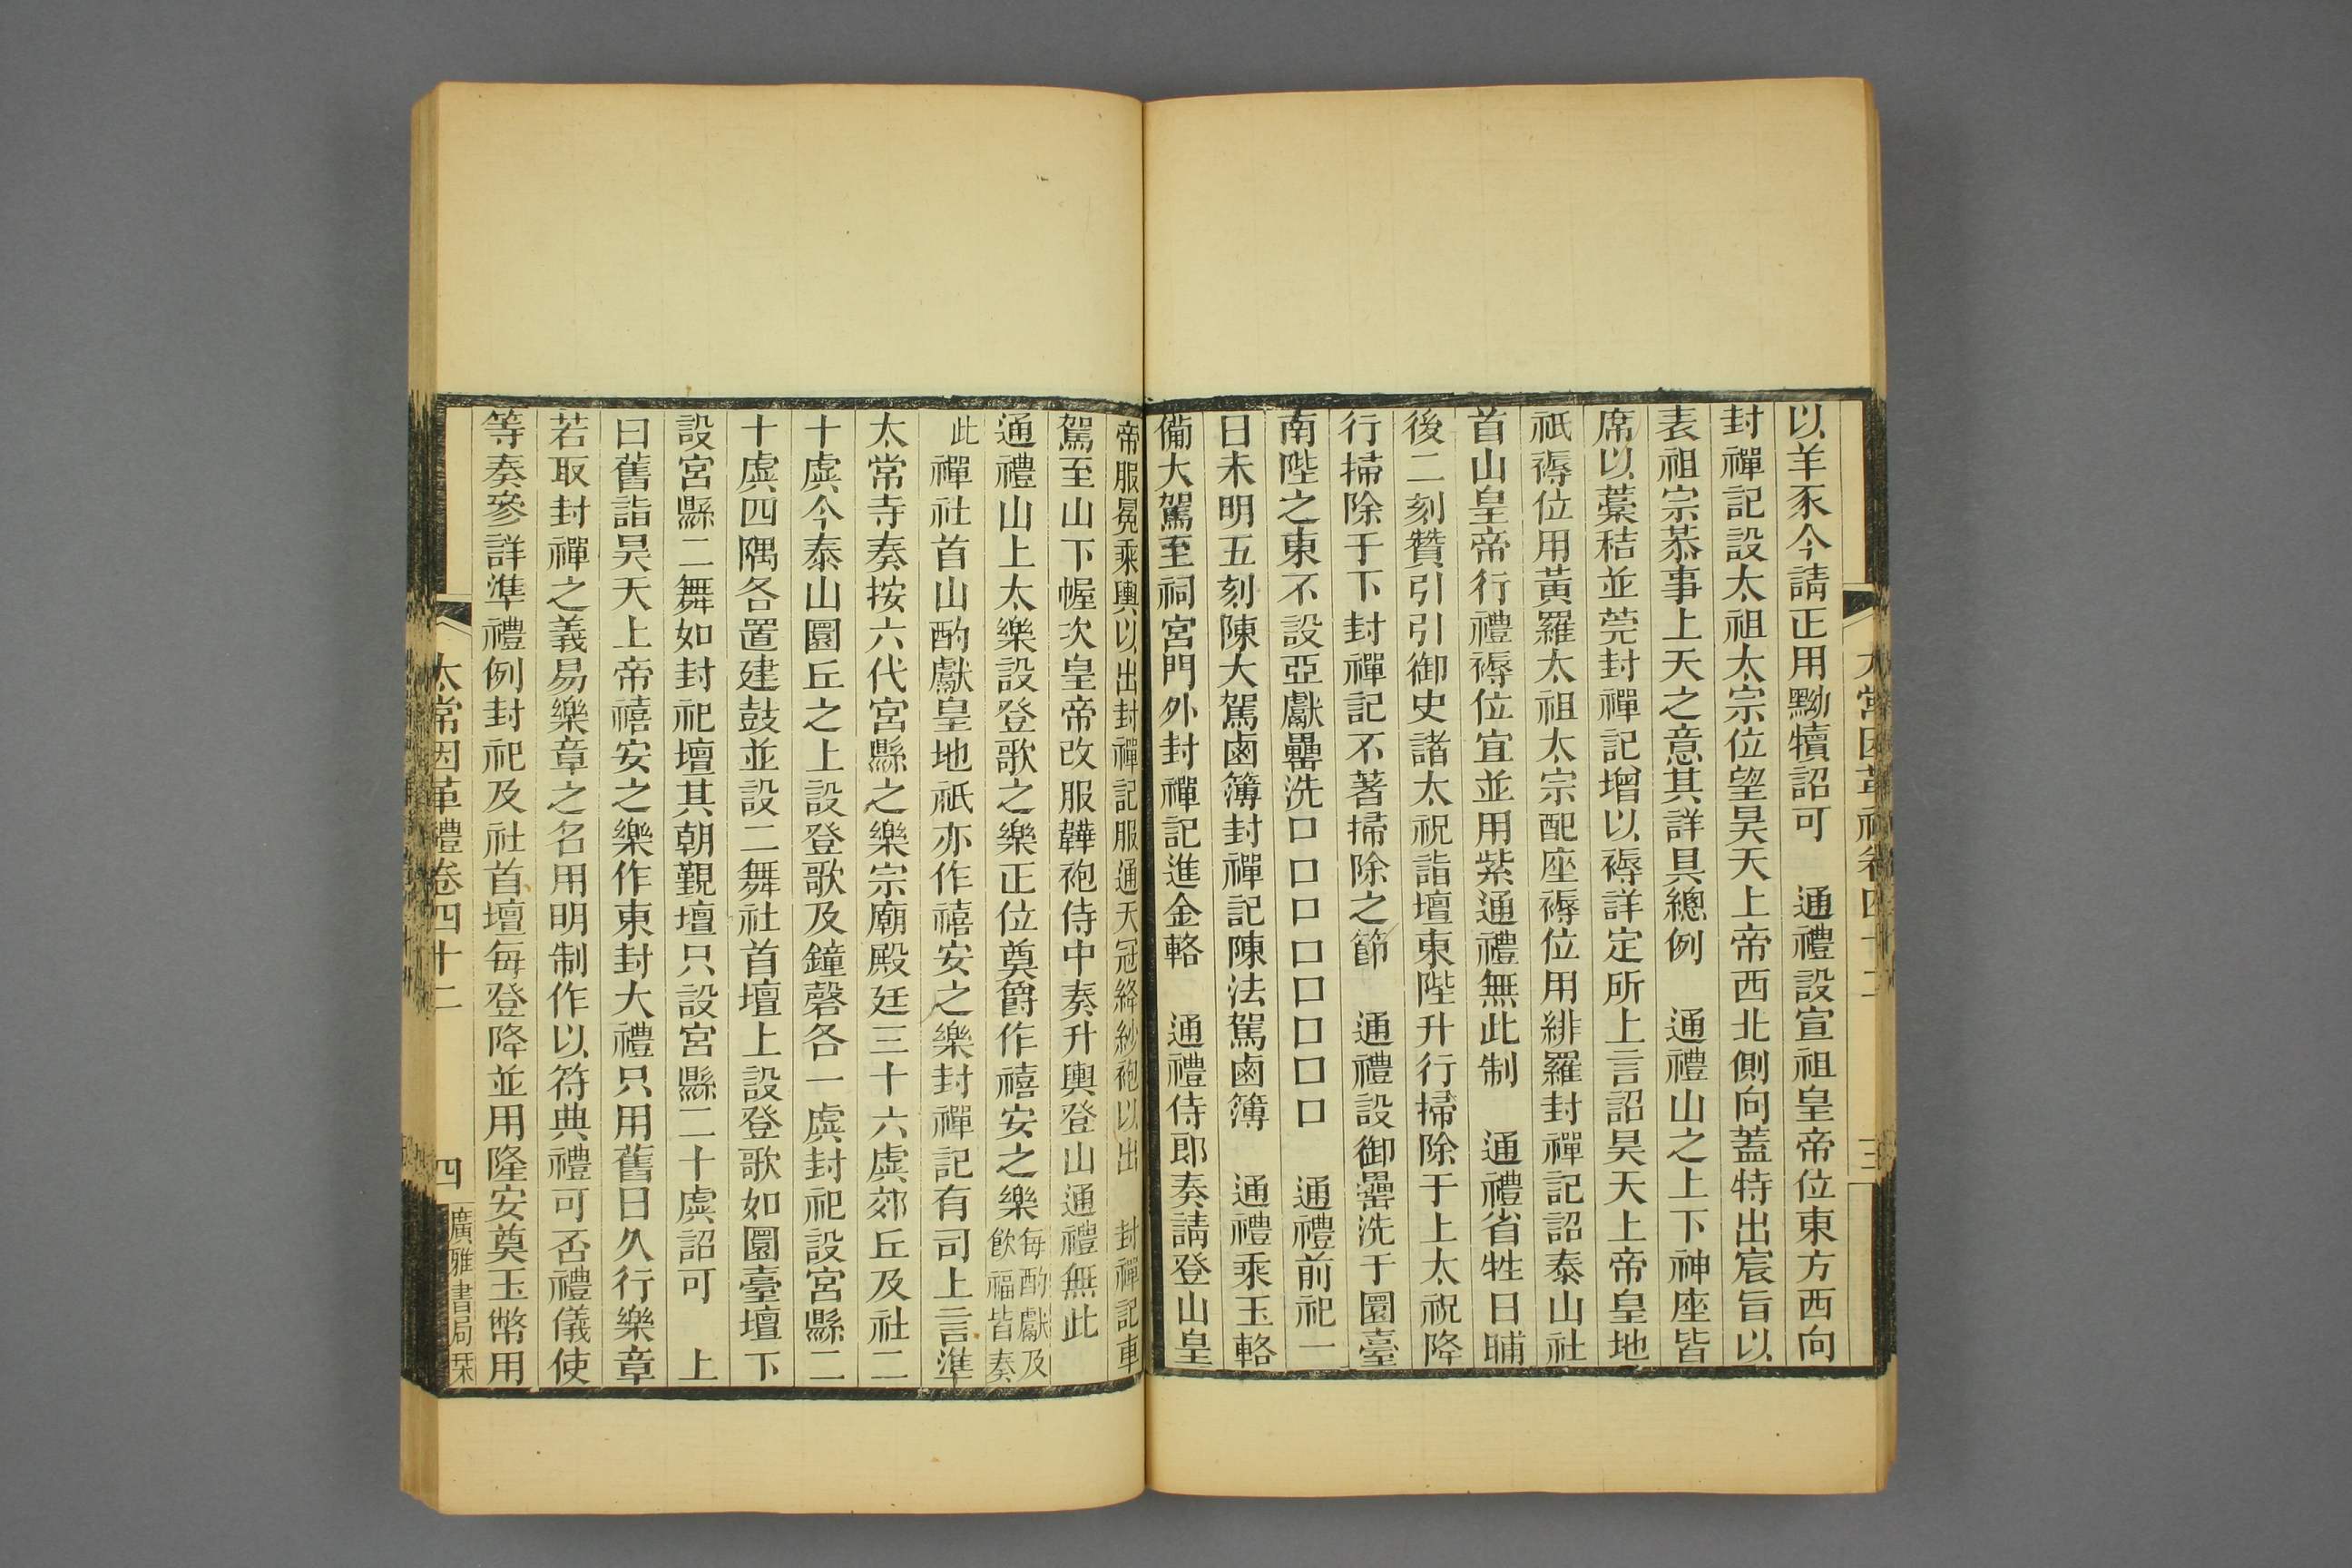 以羊豕今請正用黝犢詔可　通禮設宣祖皇帝位東方西向
封禪記設太祖太宗位望昊天上帝西北側向蓋特出宸旨以
表祖宗恭事上天之意其詳具總例　通禮山之上下神座皆
席以藁秸並莞封禪記增以褥詳定所上言詔昊天上帝皇地
祇褥位用黃羅太祖太宗配座褥位用緋羅封禪記詔泰山社
首山皇帝行禮褥位宜並用紫通禮無此制　通禮省牲日晡
後二刻贊引引御史諸太祝詣壇東陛升行掃除于上太祝降
行掃除于下封禪記不著掃除之節　通禮設御罍洗于圜臺
南陛之東不設亞獻罍洗口口口口口口口口　通禮前祀一
日未明五刻陳大駕鹵簿封禪記陳法駕鹵簿　通禮乘玉輅
備大駕至祠宮門外封禪記進金輅　通禮侍郎奏請登山皇
帝服冕乘輿以出封禪記服通天冠絳紗袍以出　封禪記車
駕至山下幄次皇帝改服韡袍侍中奏升輿登山通禮無此
通禮山上太樂設登歌之樂正位奠爵作禧安之樂每酌獻及飲福皆奏
此禪社首山酌獻皇地祇亦作禧安之樂封禪記有司上言準
太常寺奏按六代宮縣之樂宗廟殿廷三十六虡郊丘及社二
十虡今泰山圜丘之上設登歌及鐘磬各一虡封祀設宮縣二
十虡四隅各置建鼓並設二舞社首壇上設登歌如圜臺壇下
設宮縣二舞如封祀壇其朝覲壇只設宮縣二十虡詔可　上
曰舊詣昊天上帝禧安之樂作東封大禮只用舊日久行樂章
若取封禪之義易樂章之名用明制作以符典禮可否禮儀使
等奏參詳準禮例封祀及社首壇每登降並用隆安奠玉幣用
太常因革禮卷四十二
四
廣雅書局栞